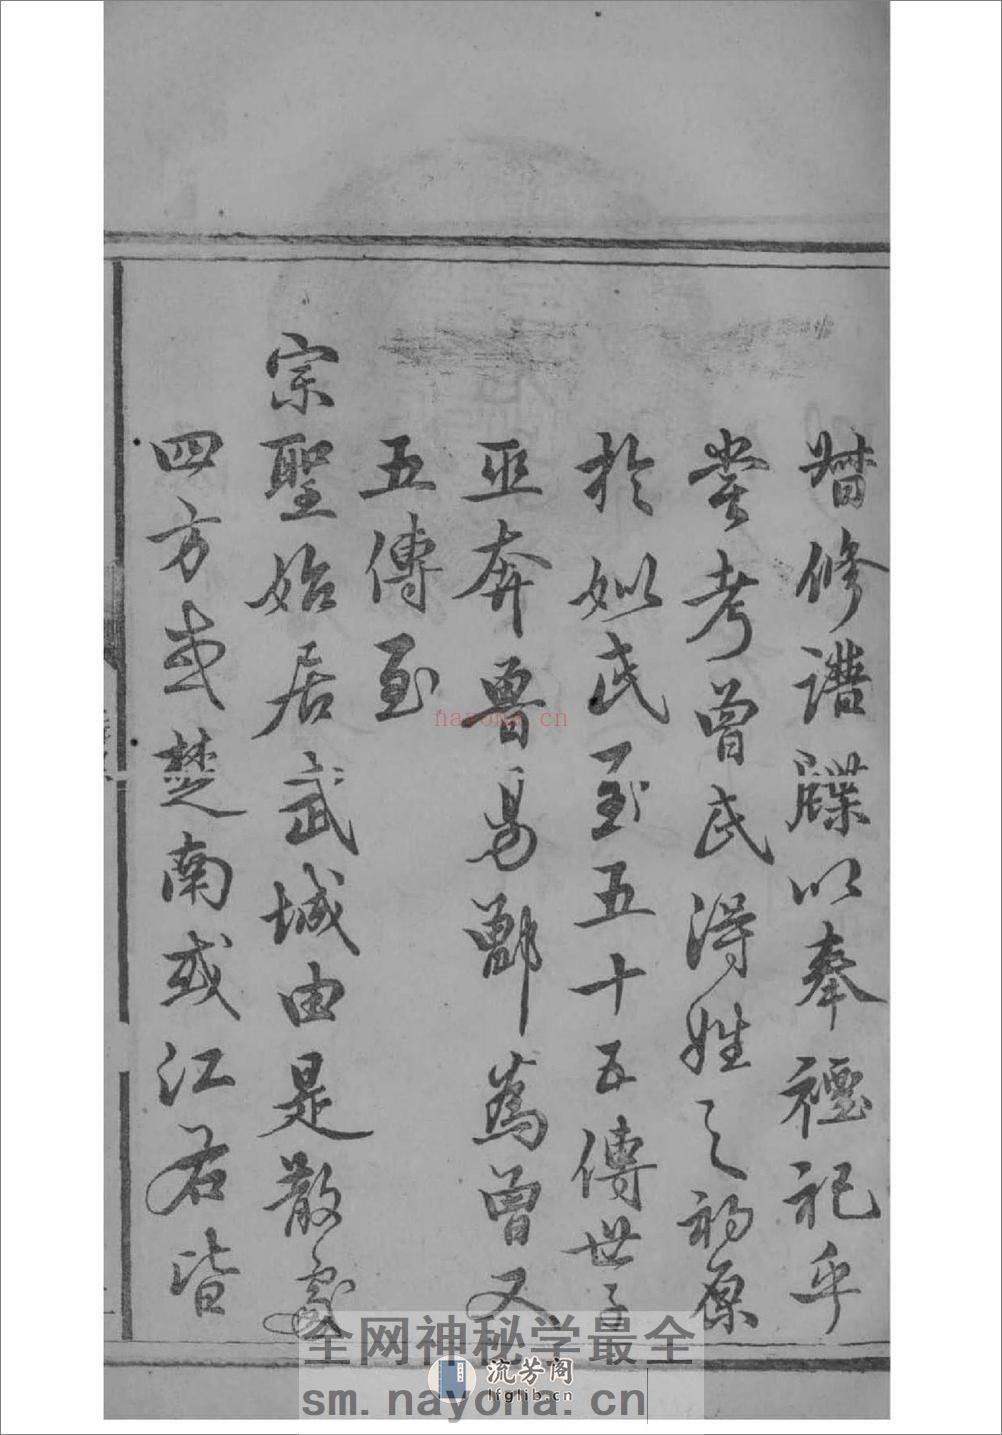 朁修譜牒以奉禋祀乎
嘗考曾氏得姓之初原
於姒氏至五十五傳世子
巫奔魯易鄫為曾又
五傳至
宗聖始居武城由是散處
四方或楚南或江右皆
nayona.cn
全网神秘学最全
流芳阁
lfglib.cn
sm.nayona.cn